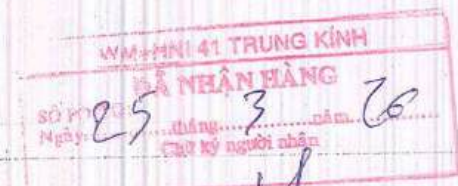 WM+HNI 41 TRUNG KÍNH
ĐÃ NHẬN HÀNG
SỐ PO
Ngày 25 tháng 3 năm 26
Chữ ký người nhận